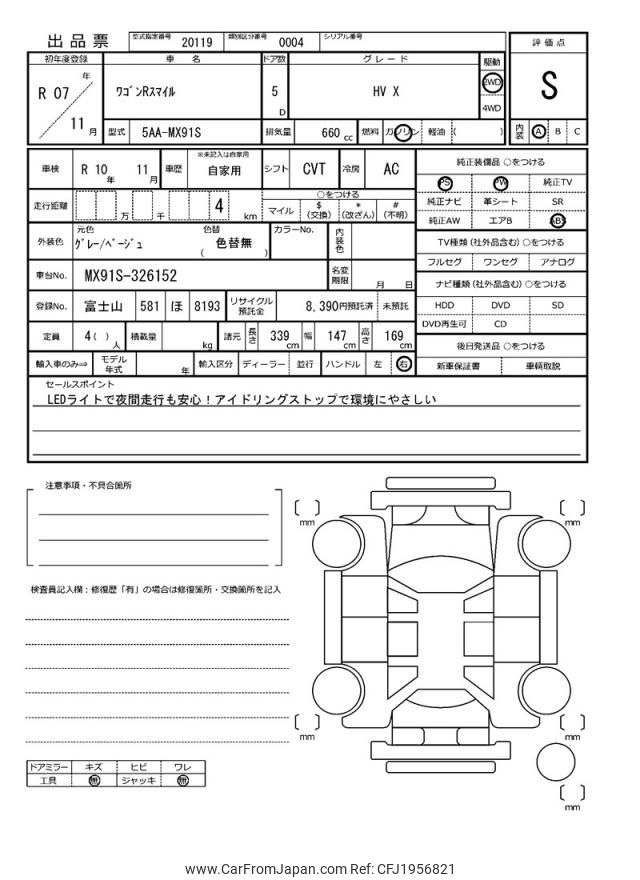 出品票 型式指定番号 20119 類別区分番号 0004 シリアル番号
評価点
S
内装 A B C
初年度登録 車名 ドア数 グレード 駆動
R 07 年 11 月
ワゴンRスマイル 5 D HV X 2WD 4WD
型式 5AA-MX91S 排気量 660 cc 燃料 ガソリン 軽油 ( )
車検 R 10 年 11 月 車歴 ※未記入は自家用 自家用 シフト CVT 冷房 AC
走行距離 万 千 4 km
○をつける
マイル $(交換) *(改ざん) #(不明)
外装色 元色 グレー/ベージュ 色替 ( 色替無 ) カラーNo. 内装色
車台No. MX91S-326152 名変期限 月 日
登録No. 富士山 581 ほ 8193 リサイクル預託金 8,390円預託済 未預託
定員 4( ) 人 積載量 kg 諸元 長さ 339 cm 幅 147 cm 高さ 169 cm
輸入車のみ⇒ モデル年式 年 輸入区分 ディーラー 並行 ハンドル 左 右
純正装備品 ○をつける
PS PW 純正TV
純正ナビ 革シート SR
純正AW エアB ABS
TV種類 (社外品含む) ○をつける
フルセグ ワンセグ アナログ
ナビ種類 (社外品含む) ○をつける
HDD DVD SD
DVD再生可 CD
後日発送品 ○をつける
新車保証書 車輌取説
セールスポイント
LEDライトで夜間走行も安心！アイドリングストップで環境にやさしい
注意事項・不具合箇所
検査員記入欄：修復歴「有」の場合は修復箇所・交換箇所を記入
[ ] mm
[ ] mm
[ ] mm
[ ] mm
[ ] mm
ドアミラー キズ ヒビ ワレ
工具 無 ジャッキ 無
www.CarFromJapan.com Ref: CFJ1956821